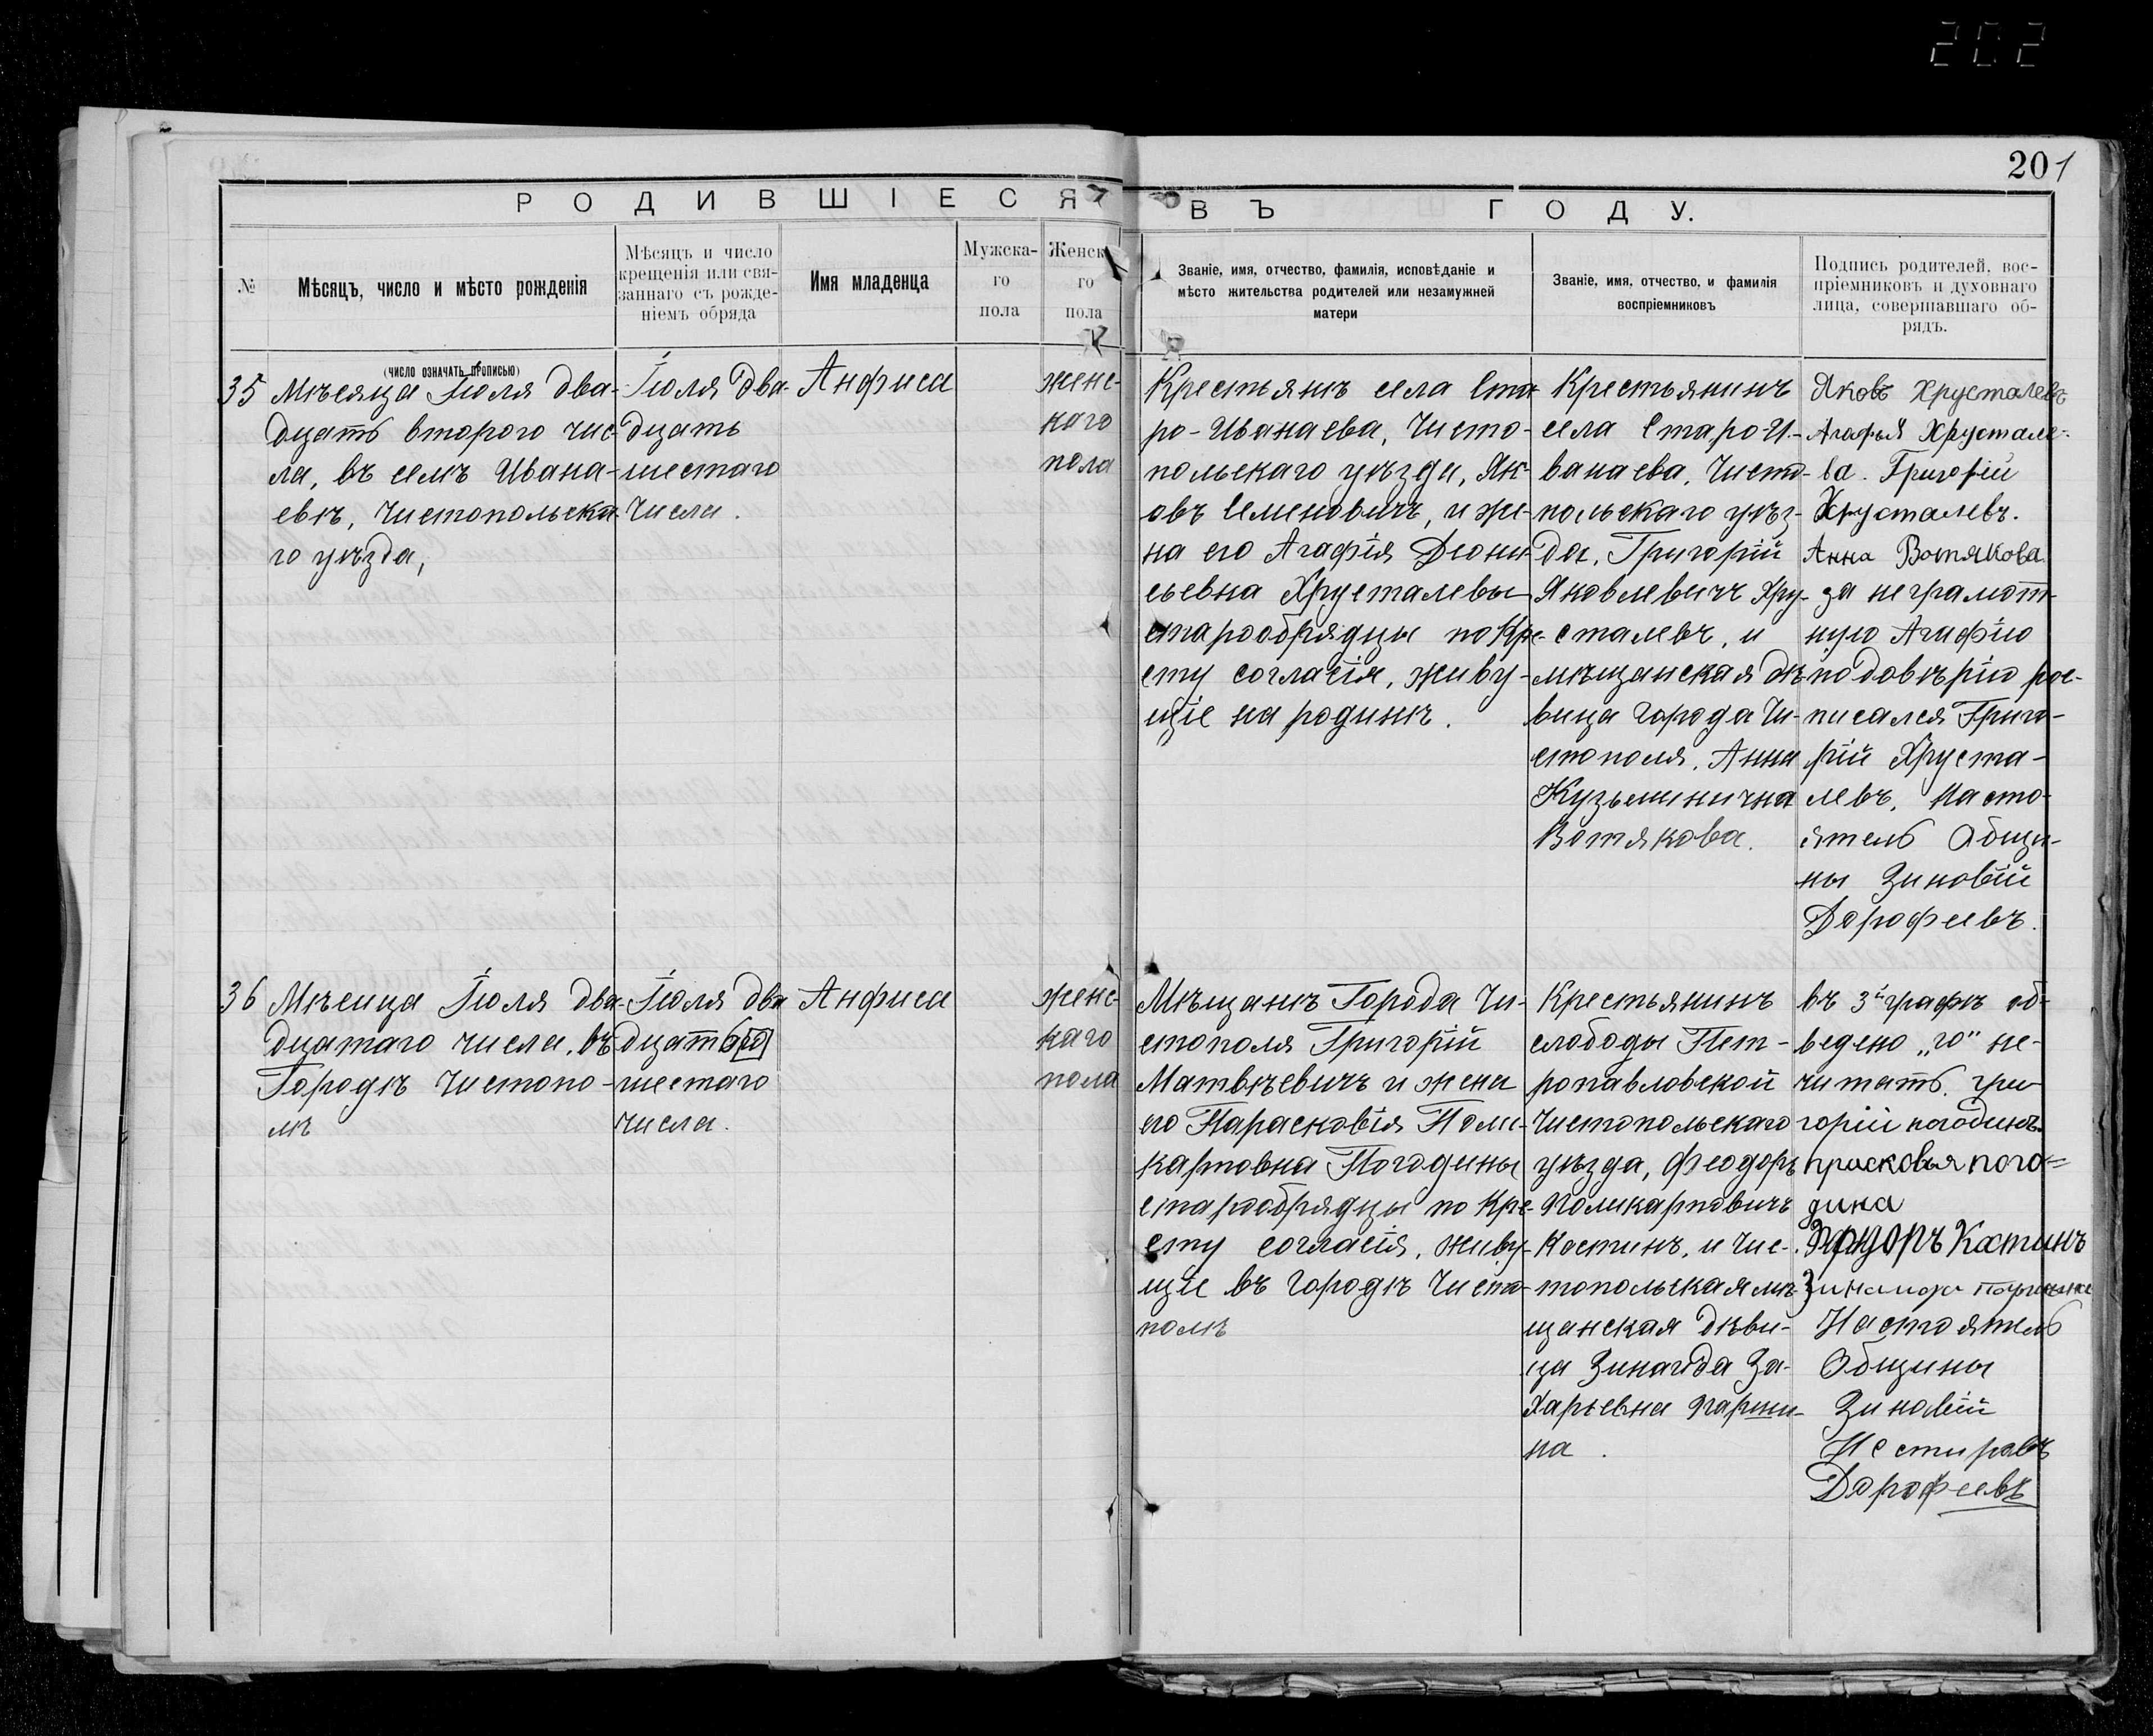 202
201
РОДИВШІЕСЯ ВЪ ГОДУ.
№
Мѣсяцъ, число и мѣсто рожденія
(число означать прописью)
Мѣсяцъ и число
крещенія или свя-
заннаго съ рожде-
ніемъ обряда
Имя младенца
Мужска-
го
пола
Женск
го
пола
Званіе, имя, отчество, фамилія, исповѣданіе и
мѣсто жительства родителей или незамужней
матери
Званіе, имя, отчество, и фамилія
воспріемниковъ
Подпись родителей, вос-
пріемниковъ и духовнаго
лица, совершавшаго об-
рядъ.
35
Мѣсяца Іюля два-
дцать второго чис-
ла, въ селѣ Ивана-
евѣ, Чистопольска-
го уѣзда,
Іюля два-
дцать
шестаго
числа.
Анфиса
женс-
каго
пола
Крестьянъ села Ста-
ро-Иванаева, Чисто-
польскаго уѣзда, Як-
овъ Семеновичъ, и же-
на его Агафія Діони-
сьевна Хрусталевы
старообрядцы по Кре-
сту согласія, живу-
щіе на родинѣ.
Крестьянинъ
села Старо-И-
ванаева, Чисто-
польскаго уѣз-
да, Григорій
Яковлевичъ Хру-
сталевъ, и
мѣщанская дѣ-
вица города Чи-
стополя, Анна
Кузьминична
Вотякова.
Яковъ Хрусталевъ
Агафья Хрустале-
ва. Григорій
Хрусталевъ.
Анна Вотякова
за неграмот-
ную Агафію
по довѣрію рос-
писался Григо-
рій Хруста-
левъ. Насто-
ятель Общи-
ны Зиновій
Дорофеевъ.
36
Мѣсица Іюля два-
дцатаго числа, въ
Городѣ Чистопо-
лѣ
Іюля два
дцать го
шестаго
числа.
Анфиса
женс-
каго
пола
Мѣщанъ Города Чи-
стополя Григорій
Матвѣевичъ и жена
его Парасковія Поли-
карповна Погодины
старообрядцы по Кре-
сту согласія, живу-
щіе въ Городѣ Чисто-
полѣ
Крестьянинъ
слободы Пет-
ропавловской
Чистопольскаго
уѣзда, Феодоръ
Поликарповичъ
Костинъ, и Чис-
топольская мѣ-
щанская дѣви-
ца Зинаида За-
харьевна Парши-
на.
въ 3й графѣ об-
ведено „го" не-
читать. гри
горій погодинъ.
прасковья пого=
дина
Костинъ
Настоятель
Общины
Зиновій
Нестировъ
Дорофеевъ